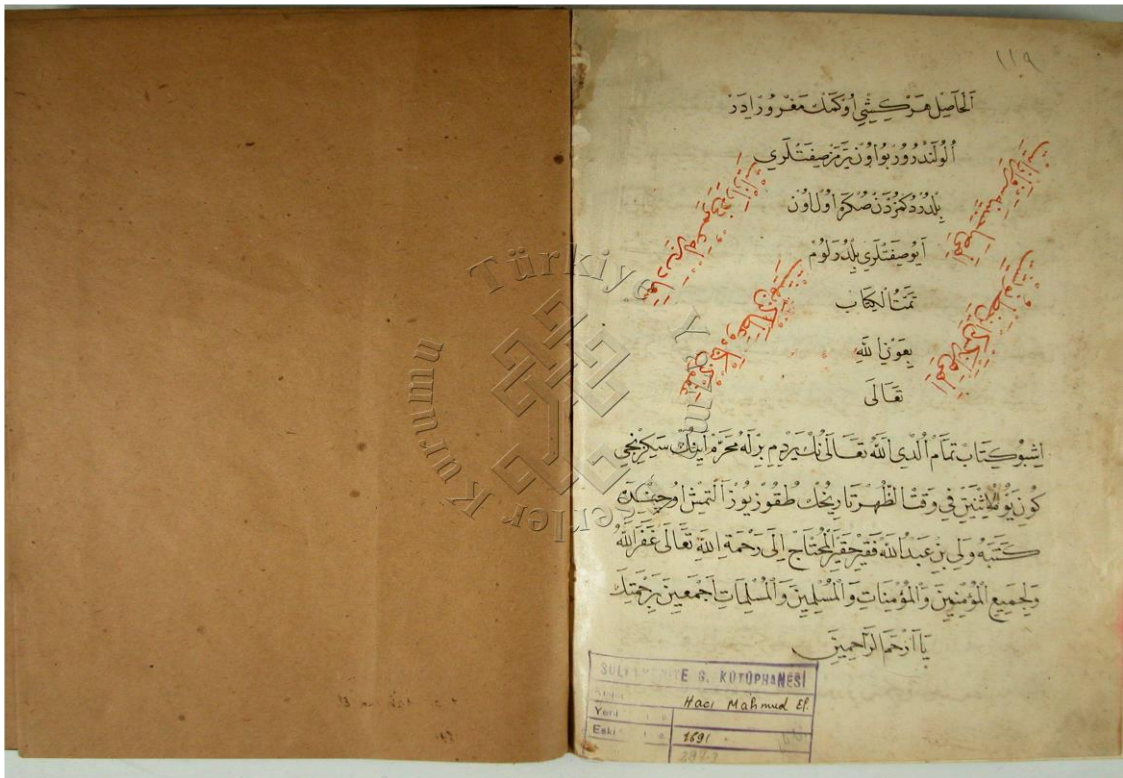 ١١٩
اَلْحَاصِل هَرْ كِشِي اُوكَمَك مَغْرُورْ اِدَرْ
اُلُولَنْدُرُورْ بُو اُونْ يَرَمَزْ صِفَتْلَرِي
بِلْدُرْدُكُمُزْدَنْ صُكْرَه اُولْ اُونْ
اَيُو صِفَتْلَرِي بِلْدُرَلُومْ
تَمَّتُ الْكِتَاب
بِعَوْنِ اللّٰهِ
تَعَالَى
اِشْبُو كِتَابْ تَمَامْ اُلْدِي اَللّٰه تَعَالَى نُكْ يَرْدِمِ بِرْلَه مُحَرَّمْ آيِنُكْ سَكِزِنْجِي
كُونِ يَوْمُ الْاِثْنَيْنِ فِي وَقْتِ الظُّهْرْ تَارِيخُكْ طُقُوزْ يُوزْ اَلْتْمِشْ اُوچِنْدَه
كَتَبَهُ وَلِي بِنْ عَبْدُ اللّٰه فَقِيرْ حَقِيرْ الْمُحْتَاج اِلَى رَحْمَةِ اللّٰهِ تَعَالَى غَفَرَ اللّٰهُ
وَلِجَمِيعِ الْمُؤْمِنِينَ وَالْمُؤْمِنَاتِ وَالْمُسْلِمِينَ وَالْمُسْلِمَاتِ اَجْمَعِينَ بِرَحْمَتِكَ
يَا اَرْحَمَ الرَّاحِمِينَ
SÜLEYMANİYE G. KÜTÜPHANESİ
Hacı Mahmud Ef.
Yeni
Eski 1691
297.7
Türkiye Yazma Eserler Kurumu